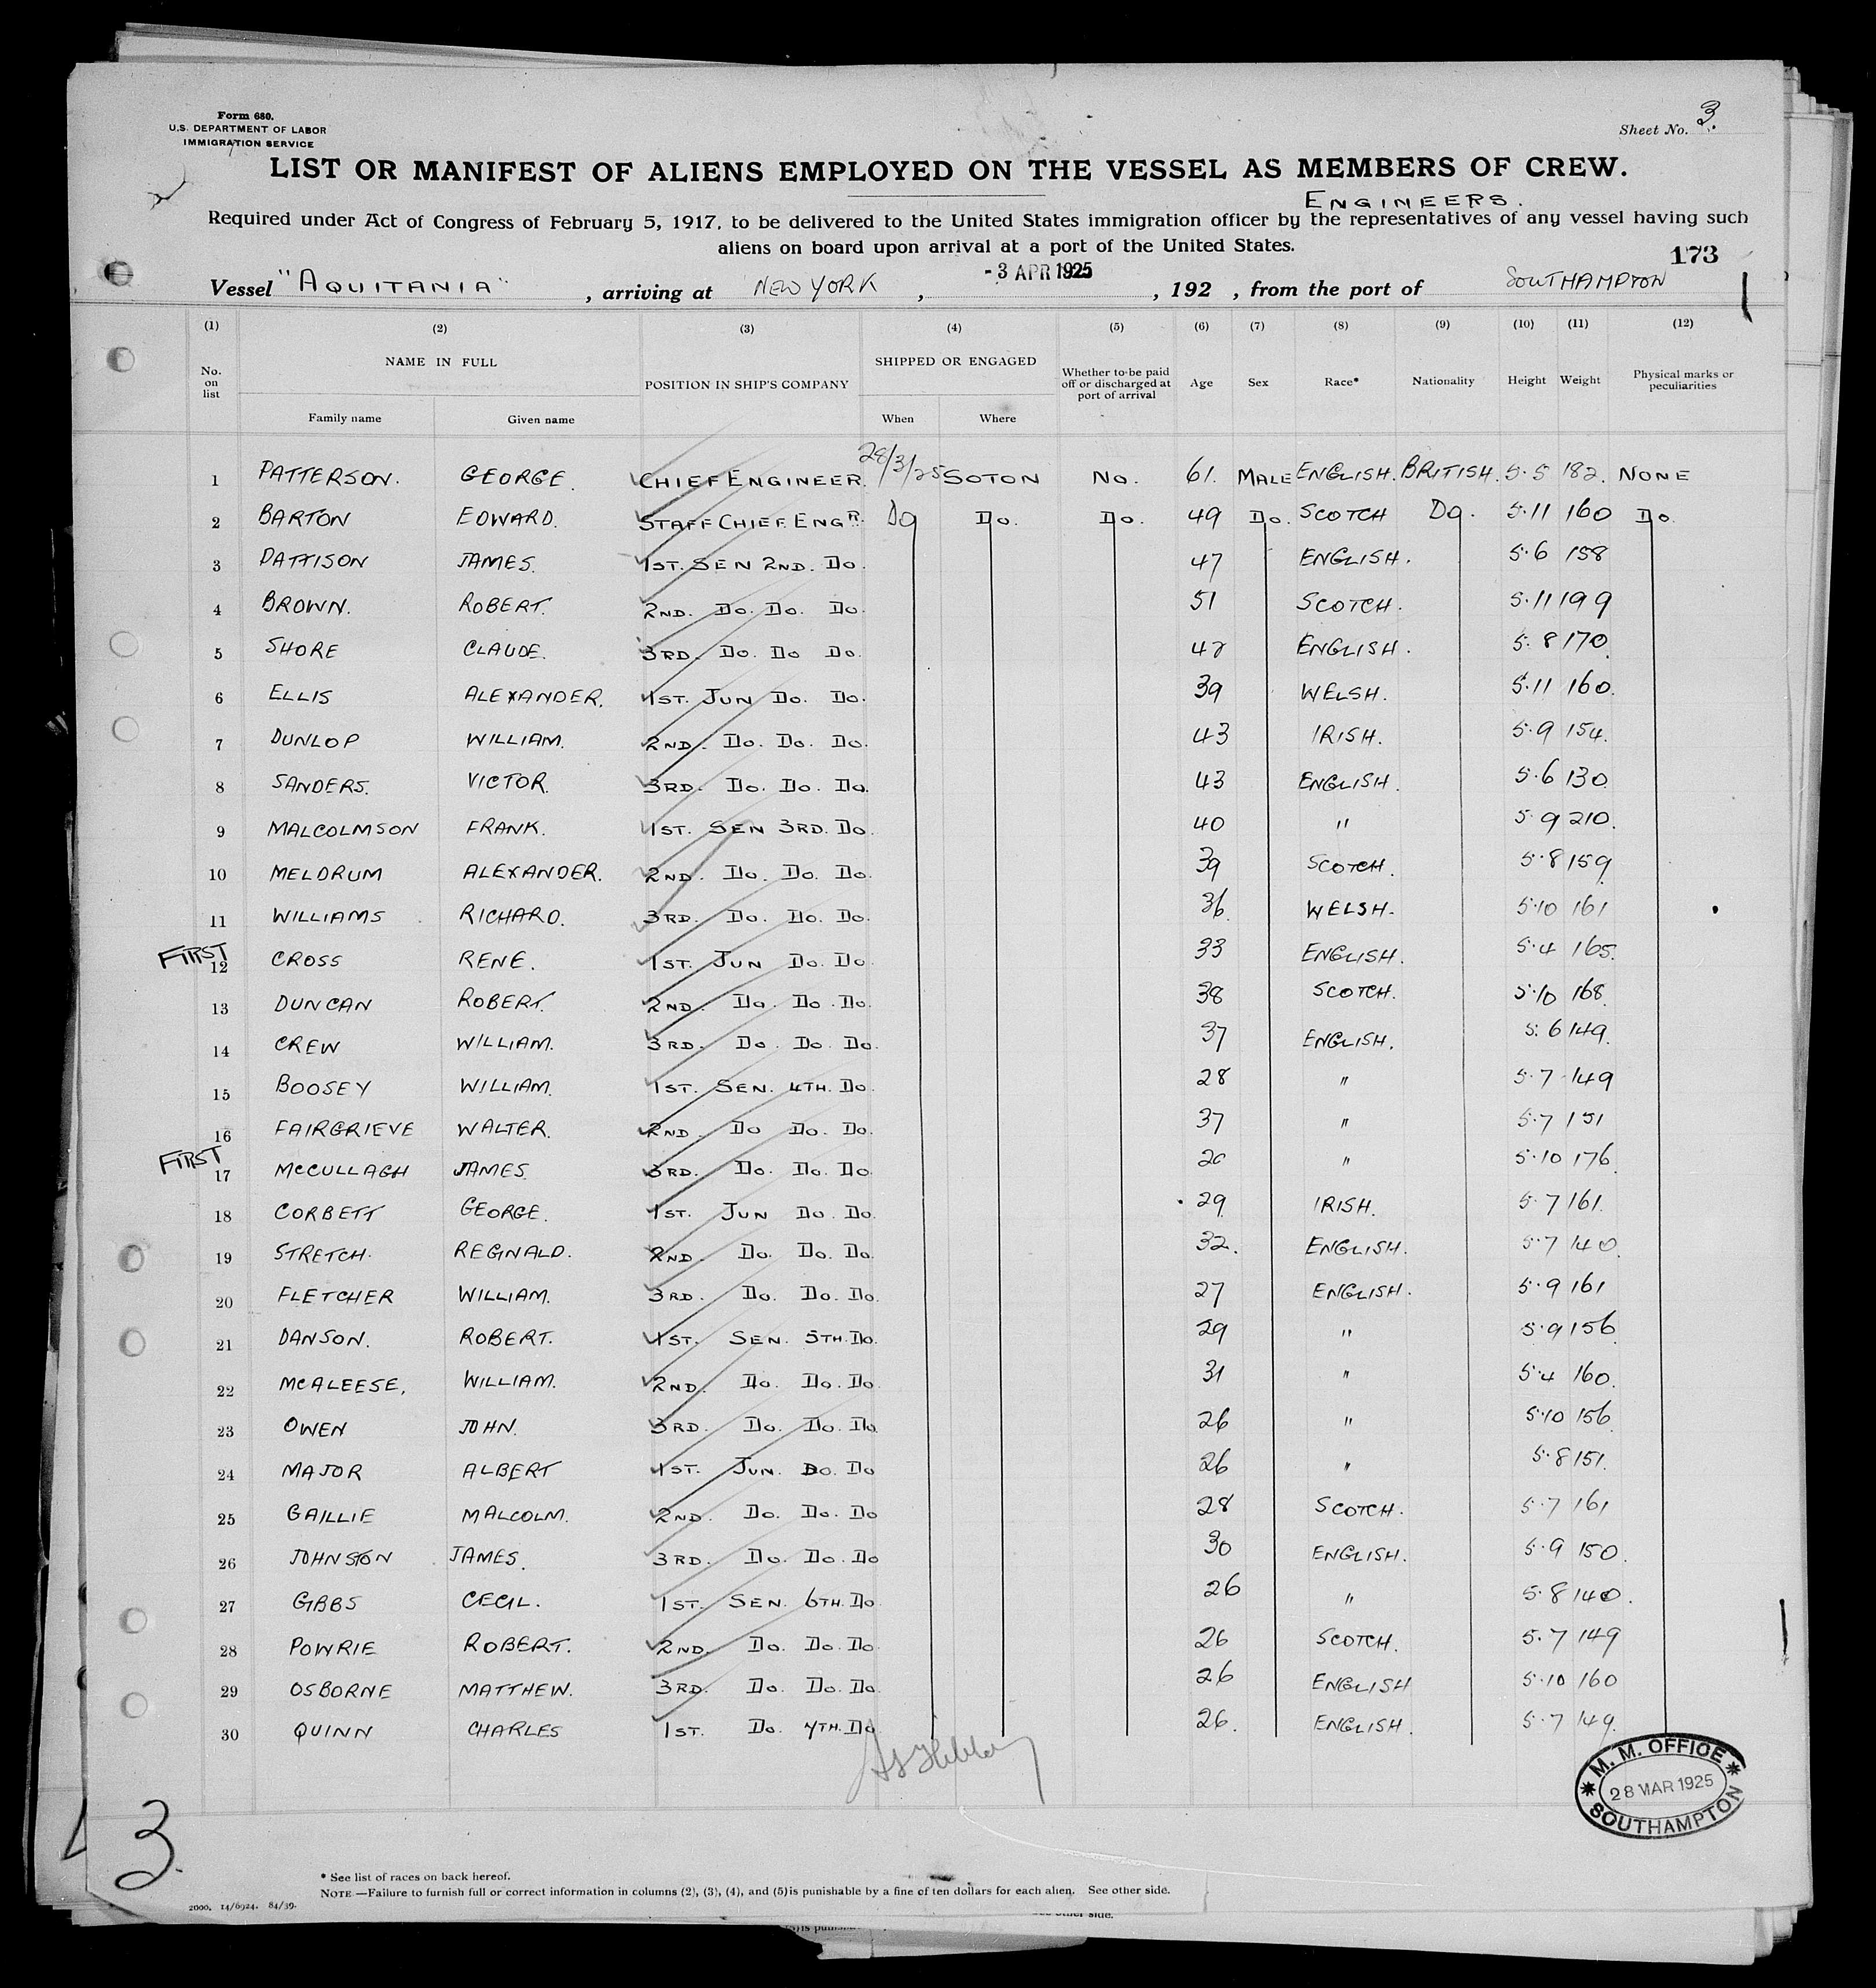 Form 680.
U.S. DEPARTMENT OF LABOR
IMMIGRATION SERVICE
Sheet No. 3.
LIST OR MANIFEST OF ALIENS EMPLOYED ON THE VESSEL AS MEMBERS OF CREW.
ENGINEERS.
Required under Act of Congress of February 5, 1917, to be delivered to the United States immigration officer by the representatives of any vessel having such
aliens on board upon arrival at a port of the United States.
173
Vessel "AQUITANIA", arriving at NEW YORK, -3 APR 1925, 192 , from the port of SOUTHAMPTON
(1) (2) (3) (4) (5) (6) (7) (8) (9) (10) (11) (12)
No. on list NAME IN FULL POSITION IN SHIP'S COMPANY SHIPPED OR ENGAGED Whether to be paid off or discharged at port of arrival Age Sex Race* Nationality Height Weight Physical marks or peculiarities
Family name Given name When Where
1 PATTERSON. GEORGE. CHIEF ENGINEER. 28/3/25 SOTON No. 61. MALE ENGLISH. BRITISH. 5·5 182. NONE
2 BARTON EDWARD. STAFF CHIEF ENGR. Do Do. Do. 49 Do. SCOTCH Do. 5·11 160 Do.
3 PATTISON JAMES. 1ST. SEN 2ND. Do. 47 ENGLISH. 5·6 158
4 BROWN. ROBERT. 2ND. Do. Do. Do. 51 SCOTCH. 5·11 199
5 SHORE CLAUDE. 3RD. Do. Do Do. 42 ENGLISH. 5·8 170.
6 ELLIS ALEXANDER. 1ST. JUN Do. Do. 39 WELSH. 5·11 160.
7 DUNLOP WILLIAM. 2ND. Do. Do. Do. 43 IRISH. 5·9 154.
8 SANDERS. VICTOR. 3RD. Do. Do. Do. 43 ENGLISH. 5·6 130.
9 MALCOLMSON FRANK. 1ST. SEN 3RD. Do. 40 " 5·9 210.
10 MELDRUM ALEXANDER. 2ND. Do. Do. Do. 39 SCOTCH. 5·8 159
11 WILLIAMS RICHARD. 3RD. Do. Do. Do. 36 WELSH. 5·10 161
FIRST
12 CROSS RENE. 1ST. JUN Do. Do. 33 ENGLISH. 5·4 165.
13 DUNCAN ROBERT. 2ND. Do Do. Do. 38 SCOTCH. 5·10 168.
14 CREW WILLIAM. 3RD. Do. Do. Do. 37 ENGLISH. 5·6 149.
15 BOOSEY WILLIAM. 1ST. SEN. 4TH. Do. 28 " 5·7 149
16 FAIRGRIEVE WALTER. 2ND. Do Do. Do. 37 " 5·7 151
FIRST
17 McCULLAGH JAMES. 3RD. Do. Do. Do. " 5·10 176.
18 CORBETT GEORGE. 1ST. JUN Do. Do. 29 IRISH. 5·7 161.
19 STRETCH. REGINALD. 2ND. Do. Do. Do. 32. ENGLISH. 5·7 140.
20 FLETCHER WILLIAM. 3RD. Do. Do. Do. 27 ENGLISH. 5·9 161
21 DANSON. ROBERT. 1ST. SEN. 5TH. Do. 29 " 5·9 156
22 McALEESE, WILLIAM. 2ND. Do. Do. Do. 31 " 5·4 160.
23 OWEN JOHN. 3RD. Do. Do. Do. 26 " 5·10 156
24 MAJOR ALBERT 1ST. JUN. Do. Do 26 " 5·8 151.
25 GAILLIE MALCOLM. 2ND. Do. Do. Do 28 SCOTCH. 5·7 161
26 JOHNSTON JAMES. 3RD. Do. Do. Do 30 ENGLISH. 5·9 150.
27 GIBBS CECIL. 1ST. SEN. 6TH. Do. 26 " 5·8 140.
28 POWRIE ROBERT. 2ND. Do. Do. Do. 26 SCOTCH. 5·7 149
29 OSBORNE MATTHEW. 3RD. Do. Do. Do. 26 ENGLISH 5·10 160
30 QUINN CHARLES 1ST. Do. 7TH. Do 26. ENGLISH. 5·7 149.
M. M. OFFICE
28 MAR 1925
SOUTHAMPTON
3.
* See list of races on back hereof.
NOTE.—Failure to furnish full or correct information in columns (2), (3), (4), and (5) is punishable by a fine of ten dollars for each alien. See other side.
2000. 14/6924. 84/39.